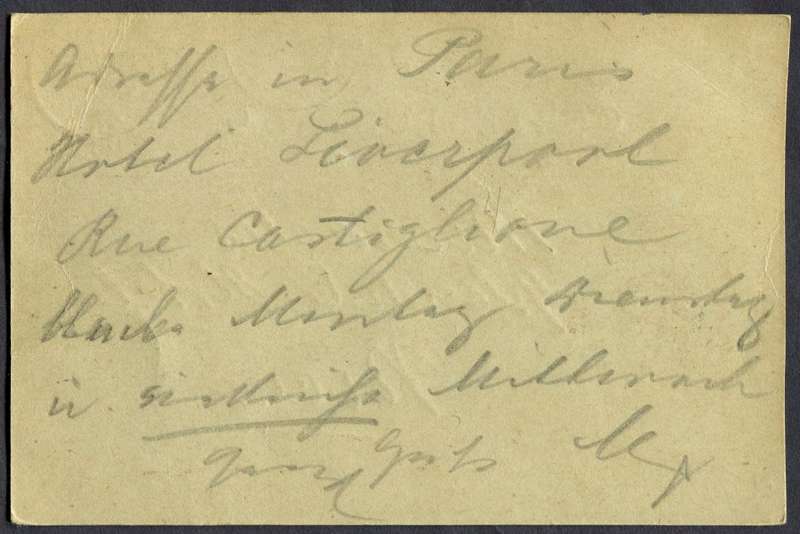 Adresse in Paris
Hotel Liverpool
Rue Castiglione
bleibe Montag Dienstag
u. Mittwoch